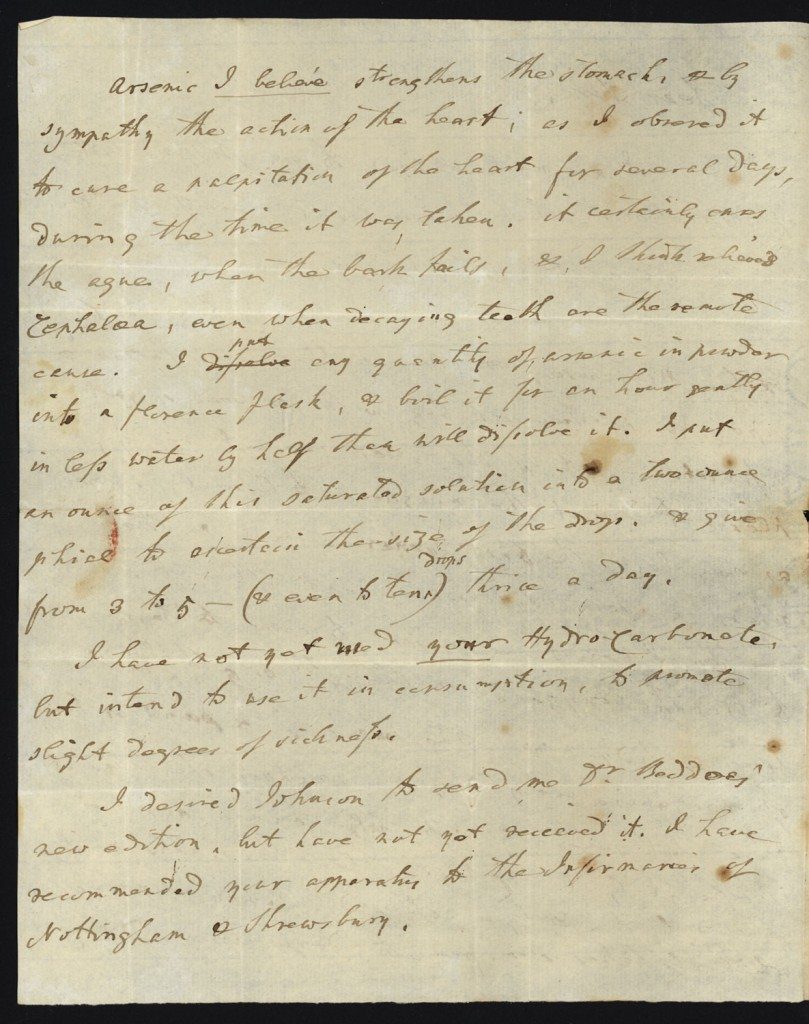 Arsenic I believe strengthens the stomach, & by
sympathy the action of the heart; as I observed it
to cure a palpitation of the heart for several days,
during the time it was taken. it certainly cures
the ague, when the bark fails, &, I think relieves
Cephalæa, even when decaying teeth are the remote
cause. I dissolve put any quantity of arsenic in powder
into a florence flask, & boil it for an hour gently
in less water by half than will dissolve it. I put
an ounce of this saturated solution into a two-ounce
phial to ascertain the size of the drops. & give
from 3 to 5 — (& even to tenn) drops thrice a day.
I have not yet used your Hydro-Carbonate,
but intend to use it in consumption, to promote
slight degrees of sickness.
I desired Johnson to send me Dr. Beddoes'
new edition, but have not yet received it. I have
recommended your apparatus to the Infirmaries of
Nottingham & Shrewsbury.